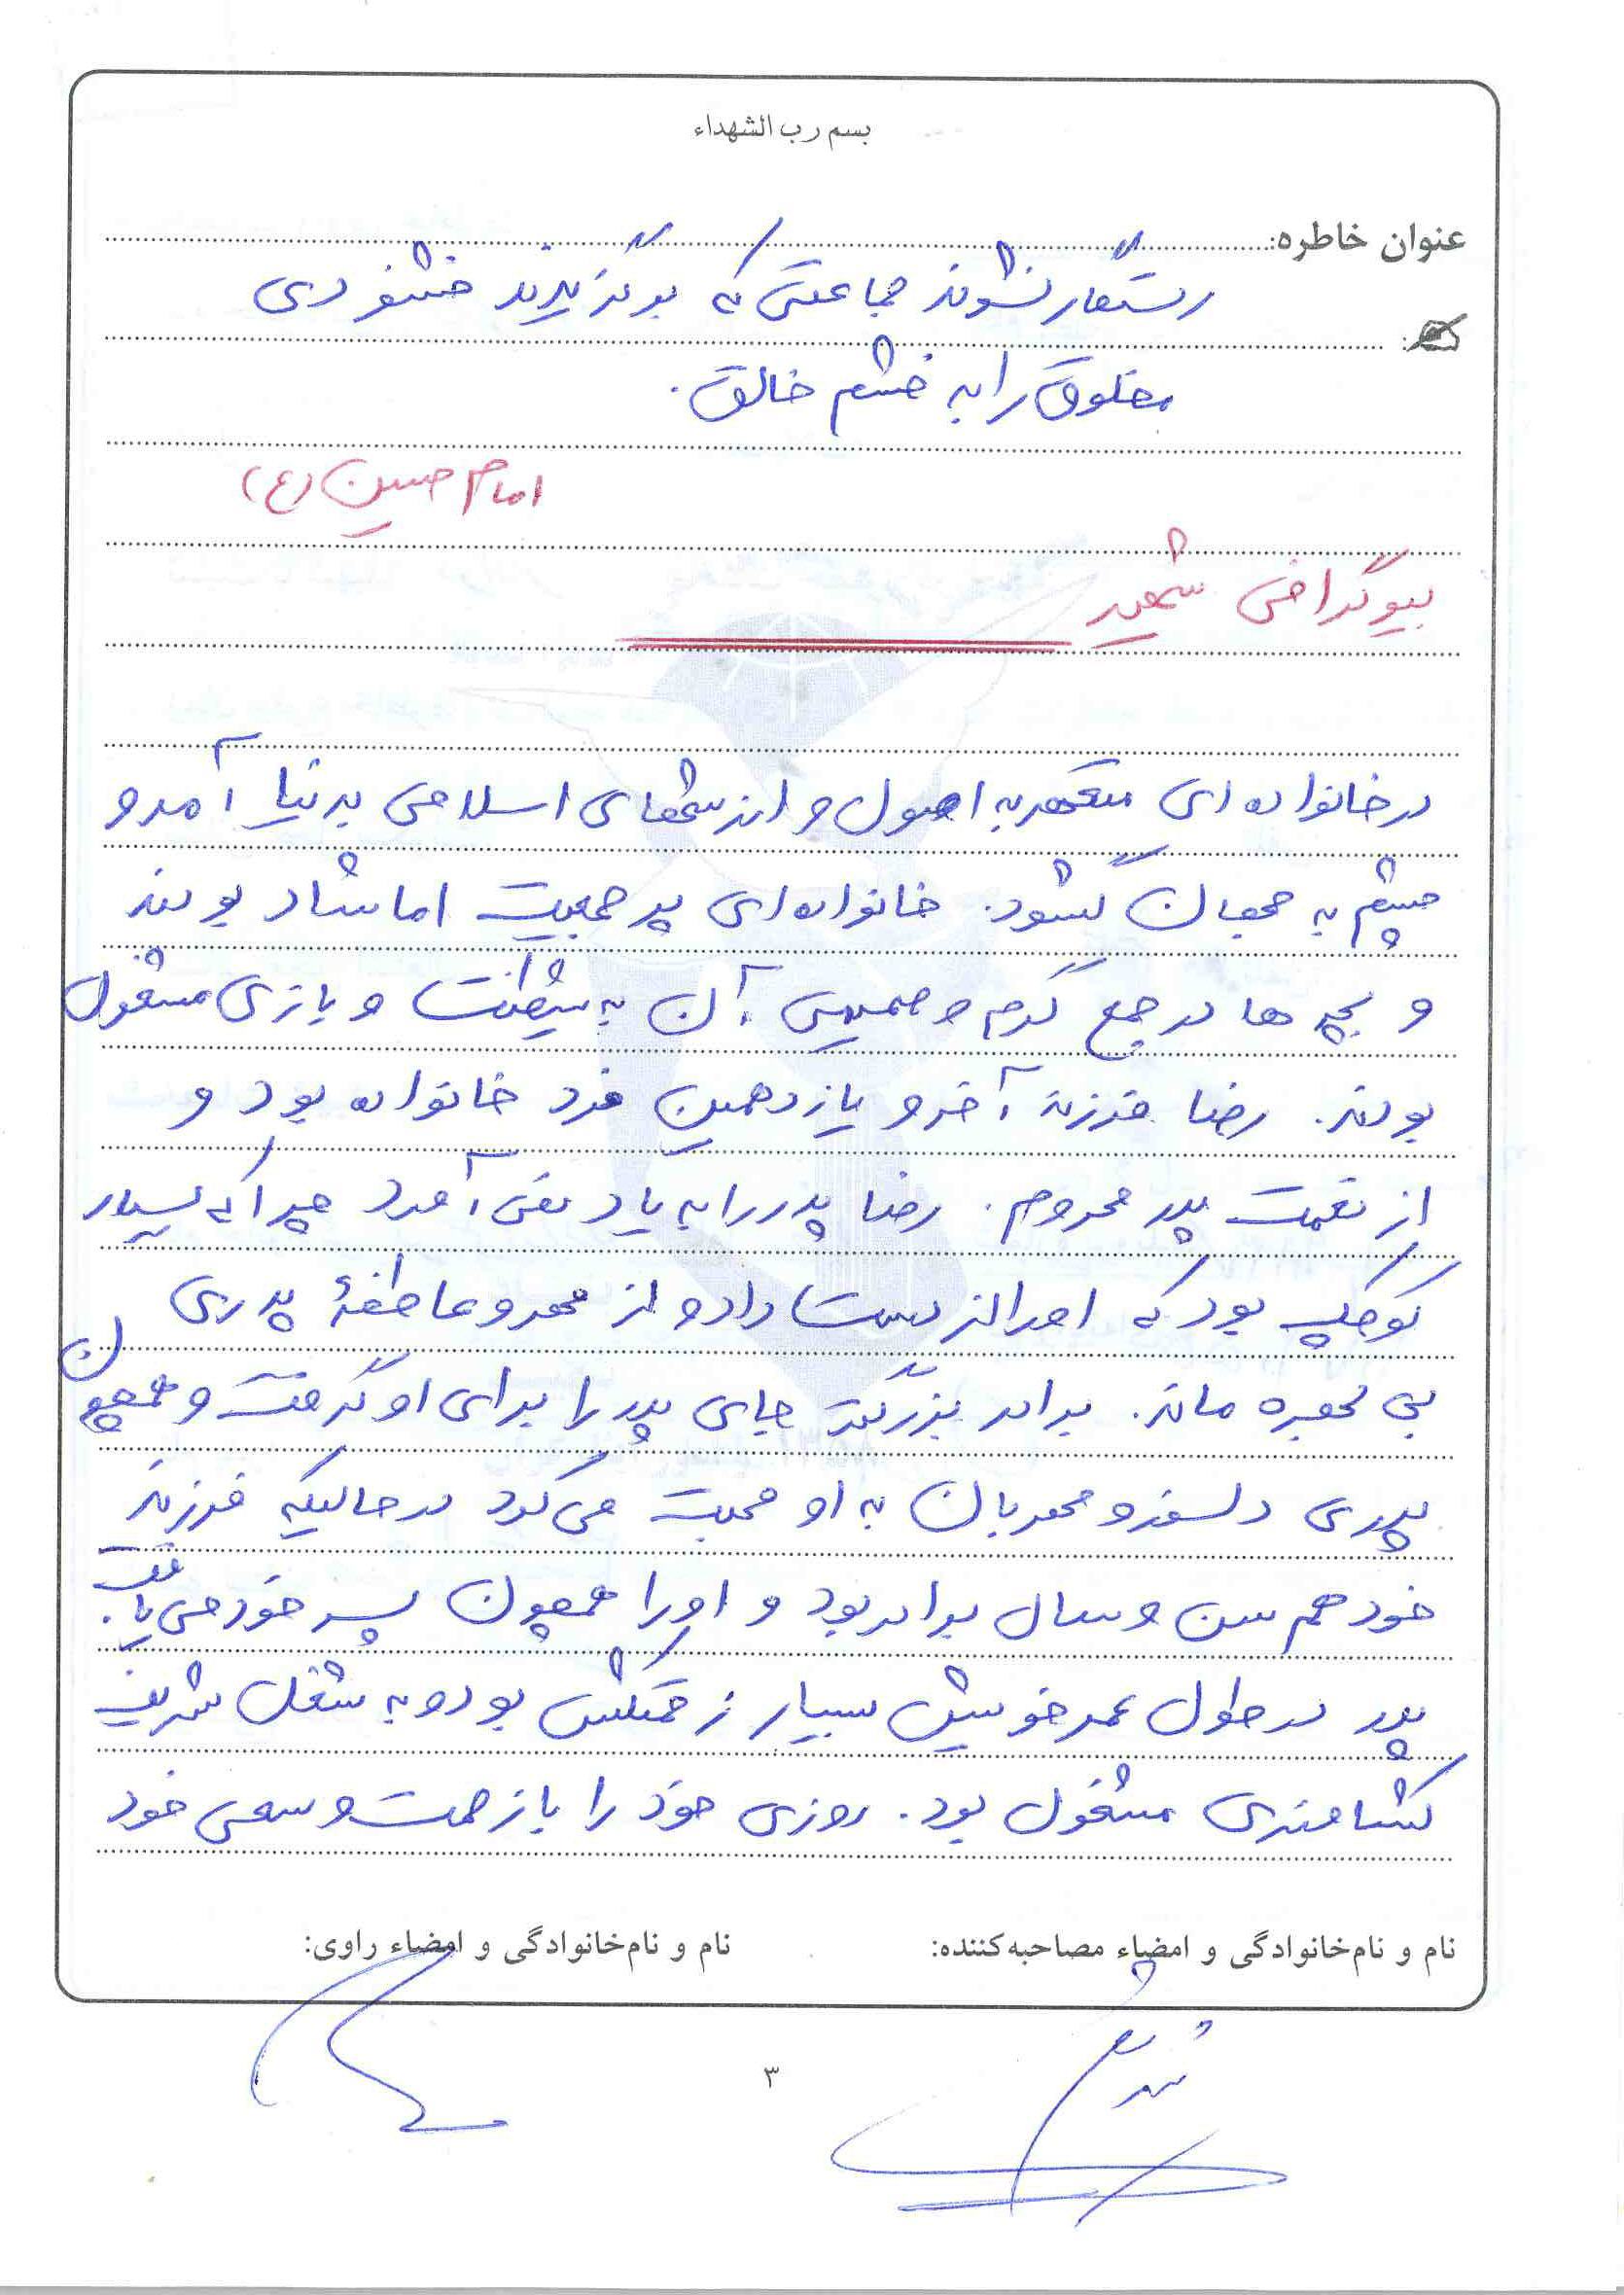 بسم رب الشهداء
عنوان خاطره:
رستگار نشوند جماعتی که برگزیدند خشنودی
مخلوق را به خشم خالق.
امام حسین (ع)
بیوگرافی شهید
در خانواده ای متعهد به اصول و ارزشهای اسلامی بدنیا آمد و
چشم به جهان گشود. خانواده ای پر جمعیت اما شاد بودند
و بچه ها در جمع گرم و صمیمی آن به شیطنت و بازی مشغول
بودند. رضا فرزند آخر و یازدهمین فرد خانواده بود و
از نعمت پدر محروم. رضا پدر را به یاد نمی آورد چرا که بسیار
کوچک بود که او را از دست داد و از مهر و عاطفۀ پدری
بی بهره ماند. برادر بزرگتر جای پدر را برای او گرفت و همچون
پدری دلسوز و مهربان به او محبت می کرد در حالیکه فرزند
خود هم سن و سال برادر بود و او را همچون پسر خود می یافت.
پدر در طول عمر خویش بسیار زحمتکش بود و به شغل شریف
کشاورزی مشغول بود. روزی خود را با زحمت و سعی خود
نام و نام‌خانوادگی و امضاء مصاحبه‌کننده:
نام و نام‌خانوادگی و امضاء راوی:
۳